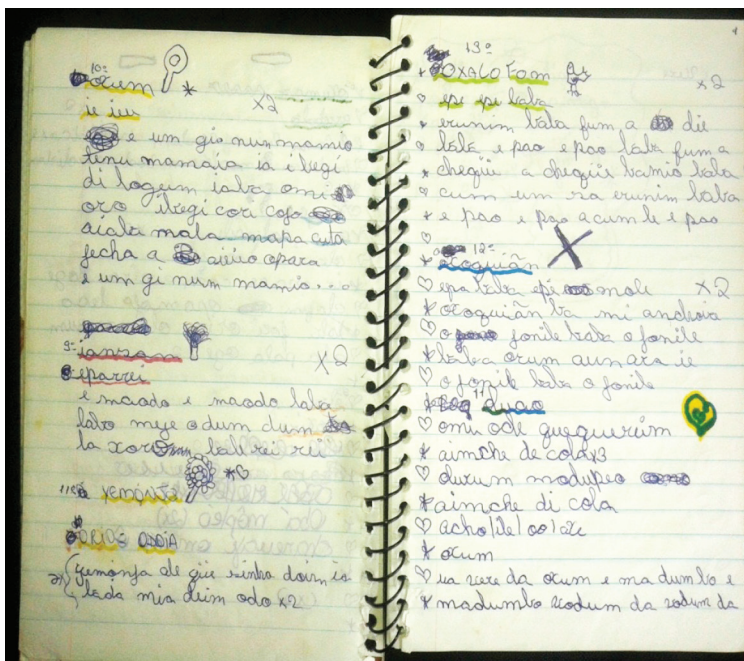 10º
ocum
ie ieu
x2
e um gi nun mamio
tenu mamãia ia ilegi
di logum iaba omi
oro ilegi cori cojo
aiaba mala mapa cuta
fecha a aiêuo apara
e um gi num mamio...
9º iansam
x2
eparrei
e maodo e maodo laba
labo meje odum dum
la xoro labrirei
11º YEMONJÁ
ODOIA
2x yemonja ale güe sinha doirn ia
lada mia deim odo x2
13º
OXALO Fam
x2
epi epi baba
erunim baba fum a die
baba e pao epao baba fum a
chegüe a chegüe bamio baba
cum um sa erunim baba
e pao e pao a cum le e pao
12º
ocoquiãn
epa baba epé mole x2
ocoquiân ba mi anchoia
o fonile baba o fonile
baba orum aunara ie
o fonile baba o fonile
11 duao
omi ode guequerém
aimche de cola x3
durum modupeo
aimche di cola
ocum
ua da ocum e ma dumbo e
madumbo xodum da xodum da